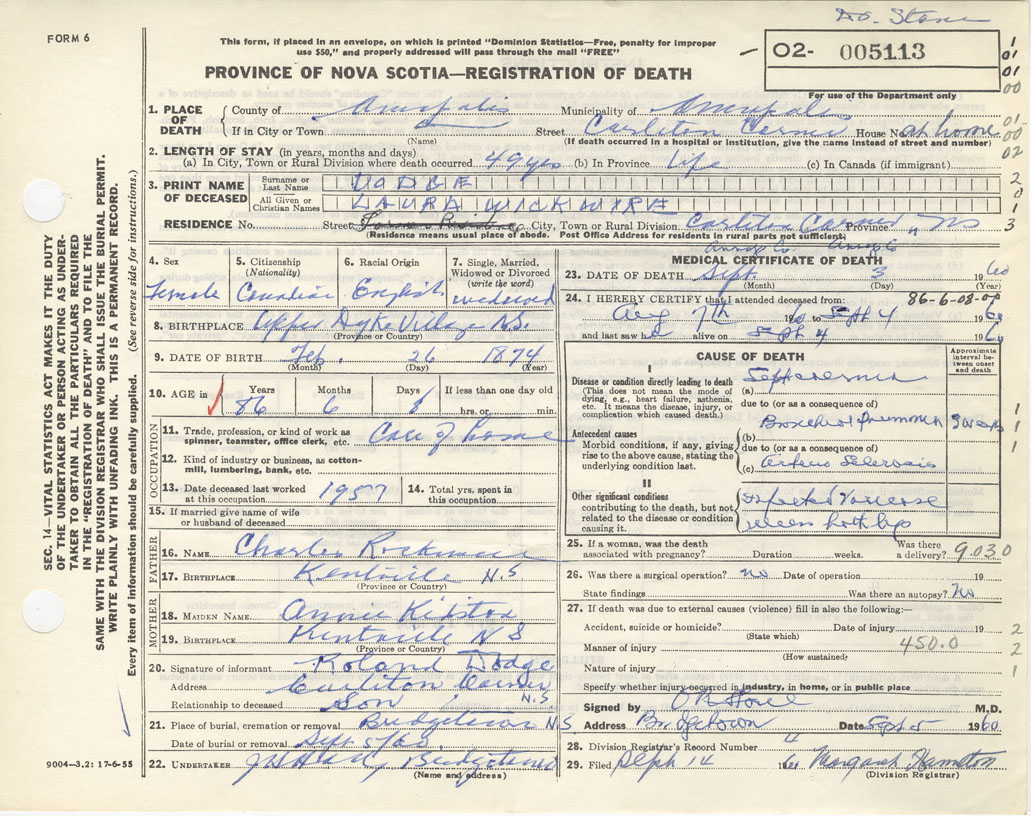 Dr. Stone
FORM 6
This form, if placed in an envelope, on which is printed "Dominion Statistics—Free, penalty for improper
use $50," and properly addressed will pass through the mail "FREE"
02- 005113
PROVINCE OF NOVA SCOTIA—REGISTRATION OF DEATH
For use of the Department only
1. PLACE OF DEATH
County of Annapolis Municipality of Annapolis
If in City or Town Street Carleton Corner House No. at home
(Name) (If death occurred in a hospital or institution, give the name instead of street and number)
2. LENGTH OF STAY (in years, months and days)
(a) In City, Town or Rural Division where death occurred 49 yrs (b) In Province Life (c) In Canada (if immigrant)
3. PRINT NAME OF DECEASED
Surname or Last Name DODGE
All Given or Christian Names LAURA WICKWIRE
RESIDENCE No. Street City, Town or Rural Division Carleton Corner Province NS
(Residence means usual place of abode. Post Office Address for residents in rural parts not sufficient)
4. Sex Female
5. Citizenship (Nationality) Canadian
6. Racial Origin English
7. Single, Married, Widowed or Divorced (write the word) widowed
8. BIRTHPLACE Upper Dyke Village N.S.
(Province or Country)
9. DATE OF BIRTH Feb. 26 1874
(Month) (Day) (Year)
10. AGE in Years 86 Months 6 Days 8 If less than one day old hrs. or min.
OCCUPATION
11. Trade, profession, or kind of work as spinner, teamster, office clerk, etc. Care of home
12. Kind of industry or business, as cotton-mill, lumbering, bank, etc.
13. Date deceased last worked at this occupation 1957
14. Total yrs. spent in this occupation
15. If married give name of wife or husband of deceased
FATHER
16. NAME Charles
17. BIRTHPLACE Kentville N.S
(Province or Country)
MOTHER
18. MAIDEN NAME Annie Kidston
19. BIRTHPLACE Kentville N S
(Province or Country)
20. Signature of informant Roland Dodge
Address Carleton Corner N.S.
Relationship to deceased Son
21. Place of burial, cremation or removal Bridgetown N.S
Date of burial or removal Sept 5/60
22. UNDERTAKER Bridgetown
(Name and address)
MEDICAL CERTIFICATE OF DEATH
23. DATE OF DEATH Sept. 3 1960
(Month) (Day) (Year)
86-6-08-00
24. I HEREBY CERTIFY that I attended deceased from:
Aug 7th to Sept 4 1960
and last saw h alive on Sept 4 1960
CAUSE OF DEATH
Approximate interval between onset and death
I
Disease or condition directly leading to death
(This does not mean the mode of dying, e.g., heart failure, asthenia, etc. It means the disease, injury, or complication which caused death.)
(a) Septicaemia
due to (or as a consequence of)
Antecedent causes
Morbid conditions, if any, giving rise to the above cause, stating the underlying condition last.
(b) Bronchial Pneumonia
due to (or as a consequence of)
(c) Arterio Sclerosis
II
Other significant conditions
contributing to the death, but not related to the disease or condition causing it.
Infected Varicose
veins both legs
25. If a woman, was the death associated with pregnancy? Duration weeks. Was there a delivery?
9.030
26. Was there a surgical operation? no Date of operation 19
State findings Was there an autopsy? No
27. If death was due to external causes (violence) fill in also the following:
Accident, suicide or homicide? Date of injury 19
(State which)
Manner of injury 450.0
(How sustained)
Nature of injury
Specify whether injury occurred in industry, in home, or in public place
Signed by M.D.
Address Bridgetown Date Sept 5 1960
28. Division Registrar's Record Number
29. Filed Sept 14 Margaret Hamilton
(Division Registrar)
SEC. 14—VITAL STATISTICS ACT MAKES IT THE DUTY
OF THE UNDERTAKER OR PERSON ACTING AS UNDER-
TAKER TO OBTAIN ALL THE PARTICULARS REQUIRED
IN THE "REGISTRATION OF DEATH" AND TO FILE THE
SAME WITH THE DIVISION REGISTRAR WHO SHALL ISSUE THE BURIAL PERMIT.
WRITE PLAINLY WITH UNFADING INK. THIS IS A PERMANENT RECORD.
Every item of information should be carefully supplied. (See reverse side for instructions.)
9004—3.2: 17-6-55